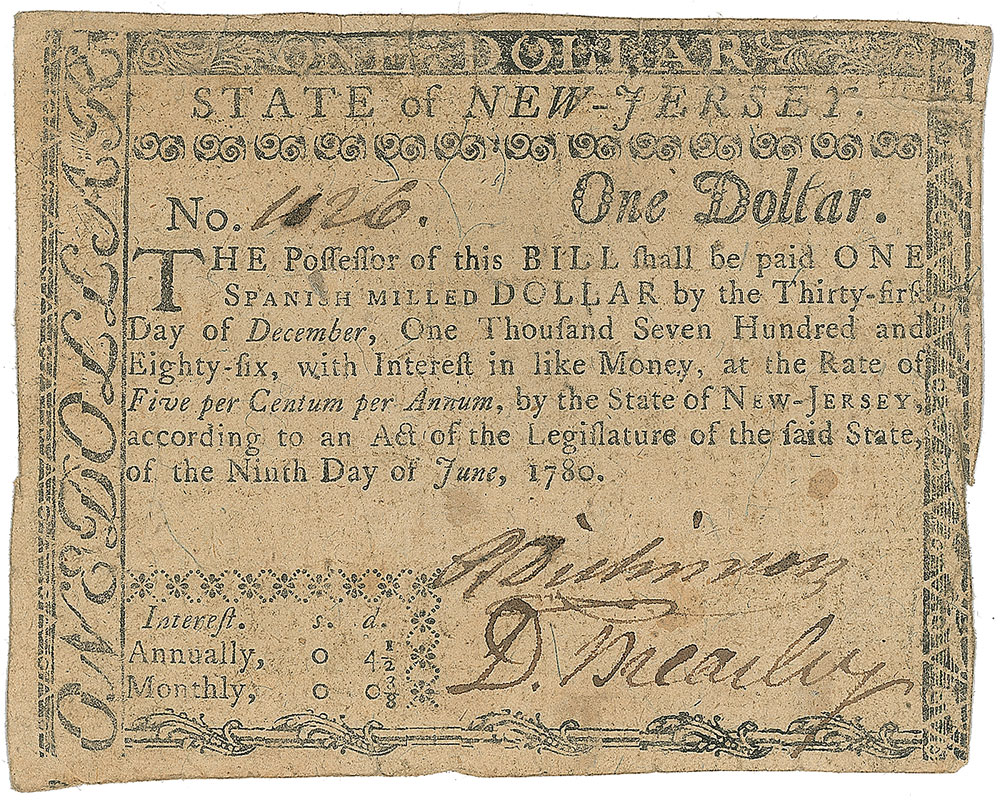 ONE DOLLAR
STATE of NEW-JERSEY.
No. 1026. One Dollar.
THE Poſſeſſor of this BILL ſhall be paid ONE
SPANISH MILLED DOLLAR by the Thirty-firſt
Day of December, One Thouſand Seven Hundred and
Eighty-ſix, with Intereſt in like Money, at the Rate of
Five per Centum per Annum, by the State of NEW-JERSEY,
according to an Act of the Legiſlature of the ſaid State,
of the Ninth Day of June, 1780.
Intereſt. s. d.
Annually, 0 4½
Monthly, 0 0⅜
D. Brearley
ONE DOLLAR